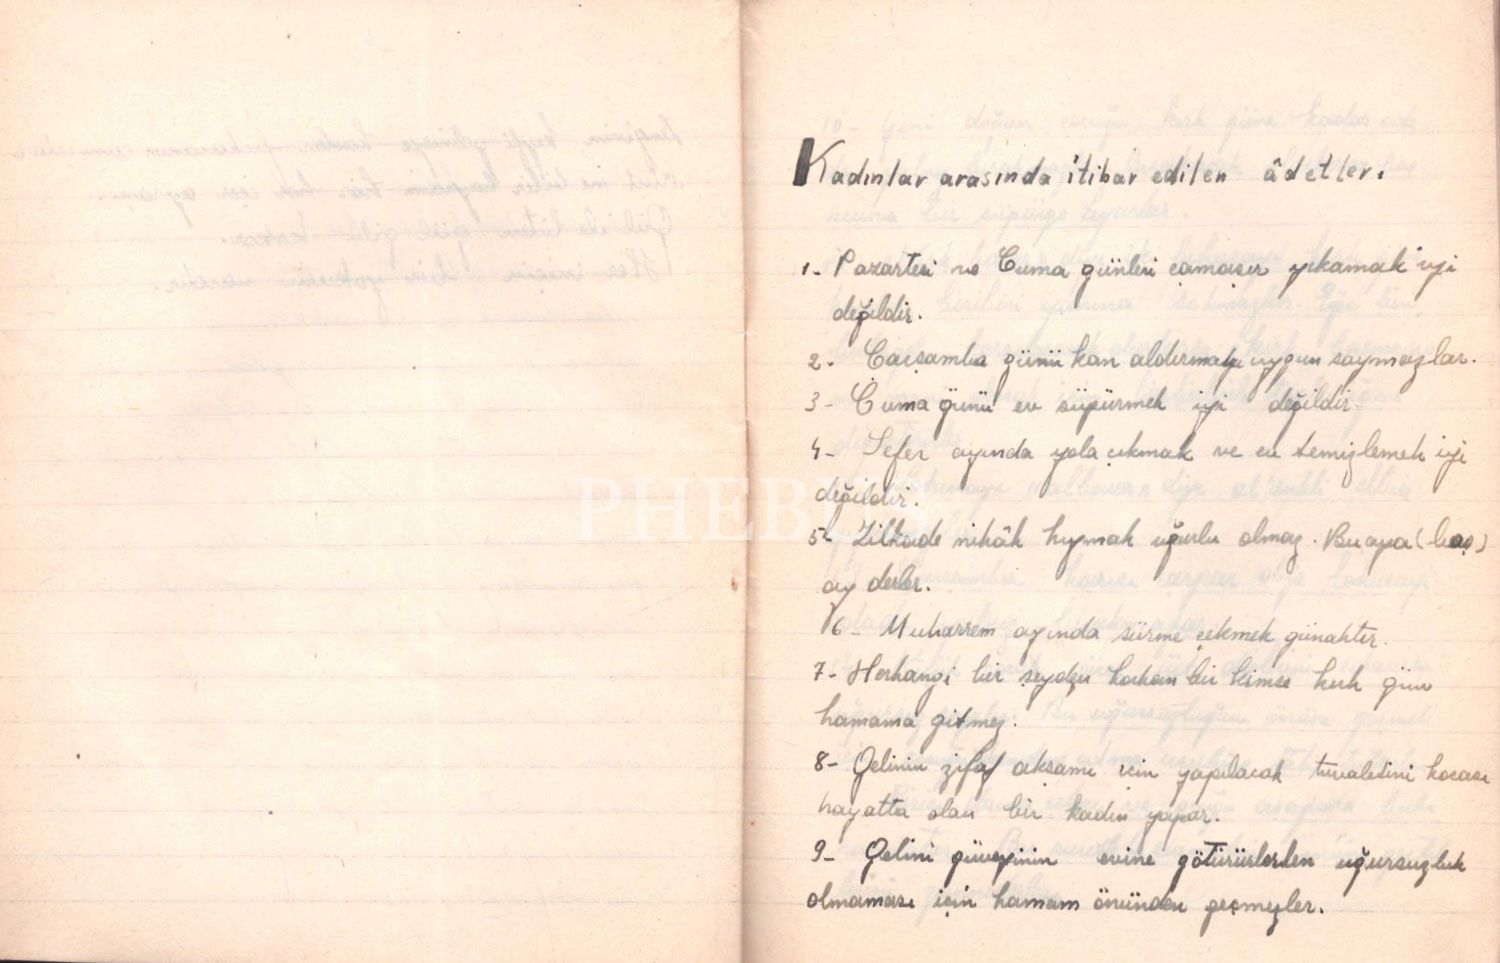 Kadınlar arasında itibar edilen âdetler.
1- Pazartesi ve Cuma günleri çamaşır yıkamak iyi
değildir.
2- Çarşamba günü kan aldırmayı uygun saymazlar.
3- Cuma günü ev süpürmek iyi değildir.
4- Sefer ayında yola çıkmak ve ev temizlemek iyi
değildir.
5- Zilkade nikâh kıymak uğurlu olmaz. Bu aya (boş)
ay derler.
6- Muharrem ayında sürme çekmek günahtır.
7- Herhangi bir şeyden korkan bir kimse kırk gün
hamama gitmez.
8- Gelinin zifaf akşamı için yapılacak tuvaletini kocası
hayatta olan bir kadın yapar.
9- Gelini güveyinin evine götürürlerken uğursuzluk
olmaması için hamam önünden geçmezler.
PHEBUS